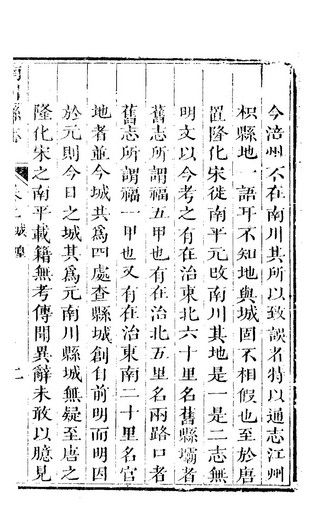 今涪州不在南川其所以致誤者特以通志江州
枳縣地一語耳不知地與城固不相假也至於唐
置隆化宋徙南平元改南川其地是一是二志無
明文以今考之有在治東北六十里名舊縣壩者
舊志所謂福五甲也有在治北五里名兩路口者
舊志所謂福一甲也又有在治東南二十里名官
地者並今城其為四處查縣城創自前明而明因
於元則今日之城其為元南川縣城無疑至唐之
隆化宋之南平載籍無考傳聞異辭未敢以臆見
南川縣志 卷之 城隍 二